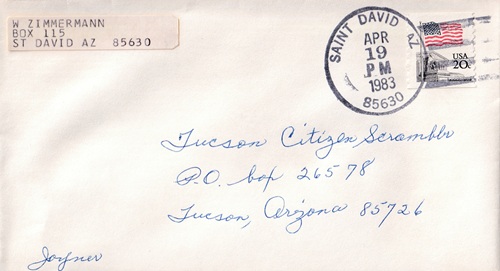 W ZIMMERMANN
BOX 115
ST DAVID AZ 85630
SAINT DAVID AZ
APR
19
PM
1983
85630
USA
20c
Tucson Citizen Scrambler
P.O. box 26578
Tucson, Arizona 85726
Joyner